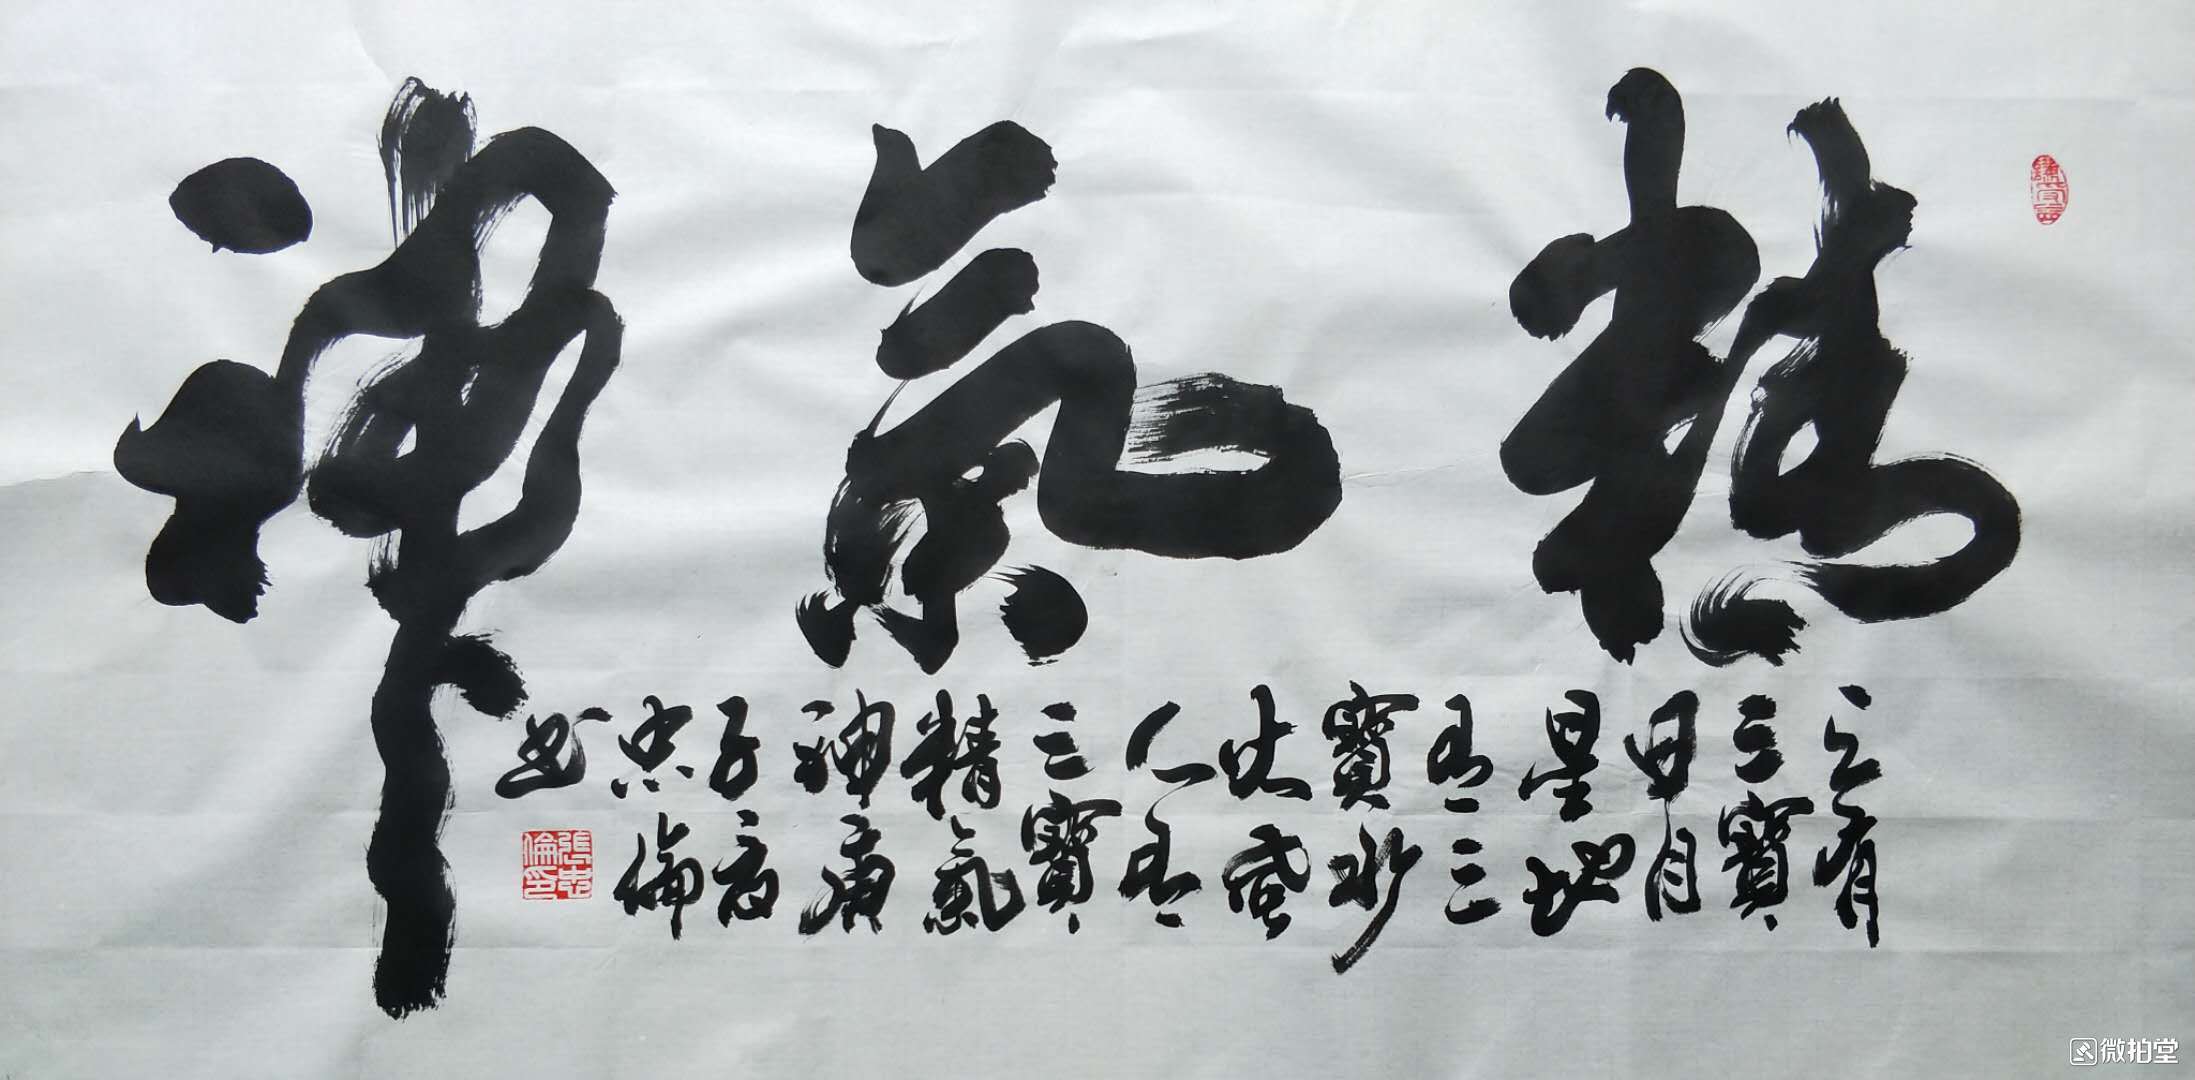 精氣神
天有
三寶
日月
星地
有三
寶水
火風
人有
三寶
精氣
神庚
子夏
忠倫
書
張忠倫印
微拍堂